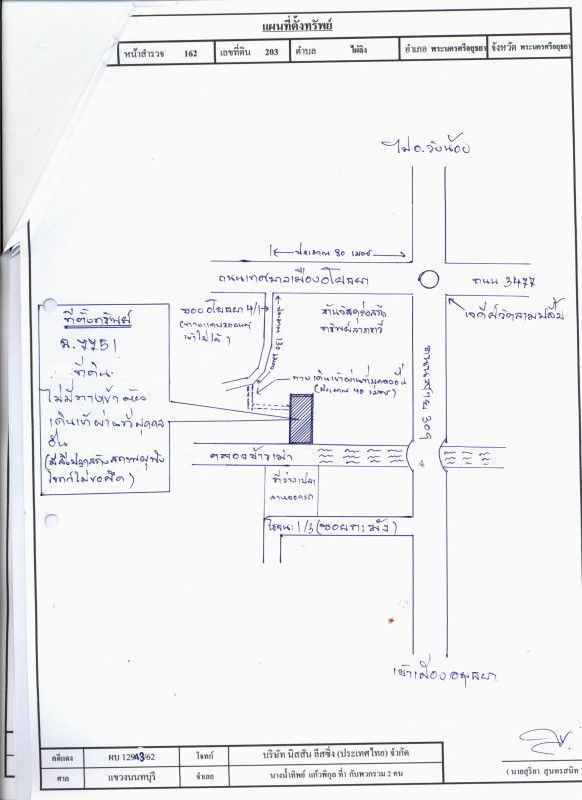 แผนที่ตั้งทรัพย์
หน้าสำรวจ 162 เลขที่ดิน 203 ตำบล ไผ่ลิง อำเภอ พระนครศรีอยุธยา จังหวัด พระนครศรีอยุธยา
ไป อ.วังน้อย
ประมาณ 80 เมตร
ถนนเทศบาลเมืองอโยธยา
ถนน 3477
เจดีย์วัดสามปลื้ม
ซอยอโยธยา 4/1
(ทางแคบรถยนต์
เข้าไม่ได้)
ประมาณ 130 เมตร
ร้านวัสดุก่อสร้าง
ทางเดินเข้าผ่านที่บุคคลอื่น
(ประมาณ 40 เมตร)
ถนนสาย 309
ที่ตั้งทรัพย์
ฉ.7751
ที่ดิน
ไม่มีทางเข้า ต้อง
เดินเข้าผ่านที่บุคคล
อื่น
(มีสิ่งปลูกสร้างสภาพผุพัง
โจทก์ไม่ขอยึด)
คลองข้าวเม่า
ที่ว่างเปล่า
ลานจอดรถ
โรจนะ 1/3 (ซอยกะมัง)
เข้าเมืองอยุธยา
คดีแดง ผบ 1243/62 โจทก์ บริษัท นิสสัน ลีสซิ่ง (ประเทศไทย) จำกัด
ศาล แขวงนนทบุรี จำเลย นางน้ำทิพย์ แก้วพิกุล ที่1 กับพวกรวม 2 คน
( นายสุริยา สุนทรสนิท